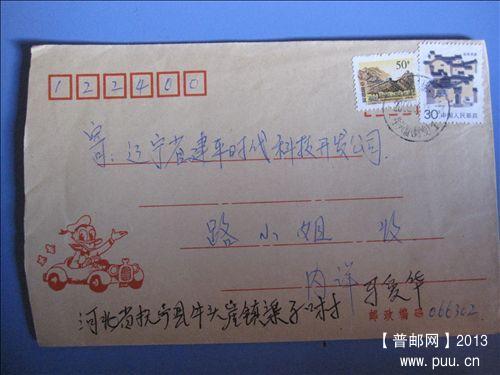 50分
30分 中国人民邮政
122400
寄：辽宁省建车时代科技开发公司
路小姐 收
内详
河北省抚宁县牛头崖镇梁子口村
邮政编码 066302
【普邮网】2013
www.puu.cn